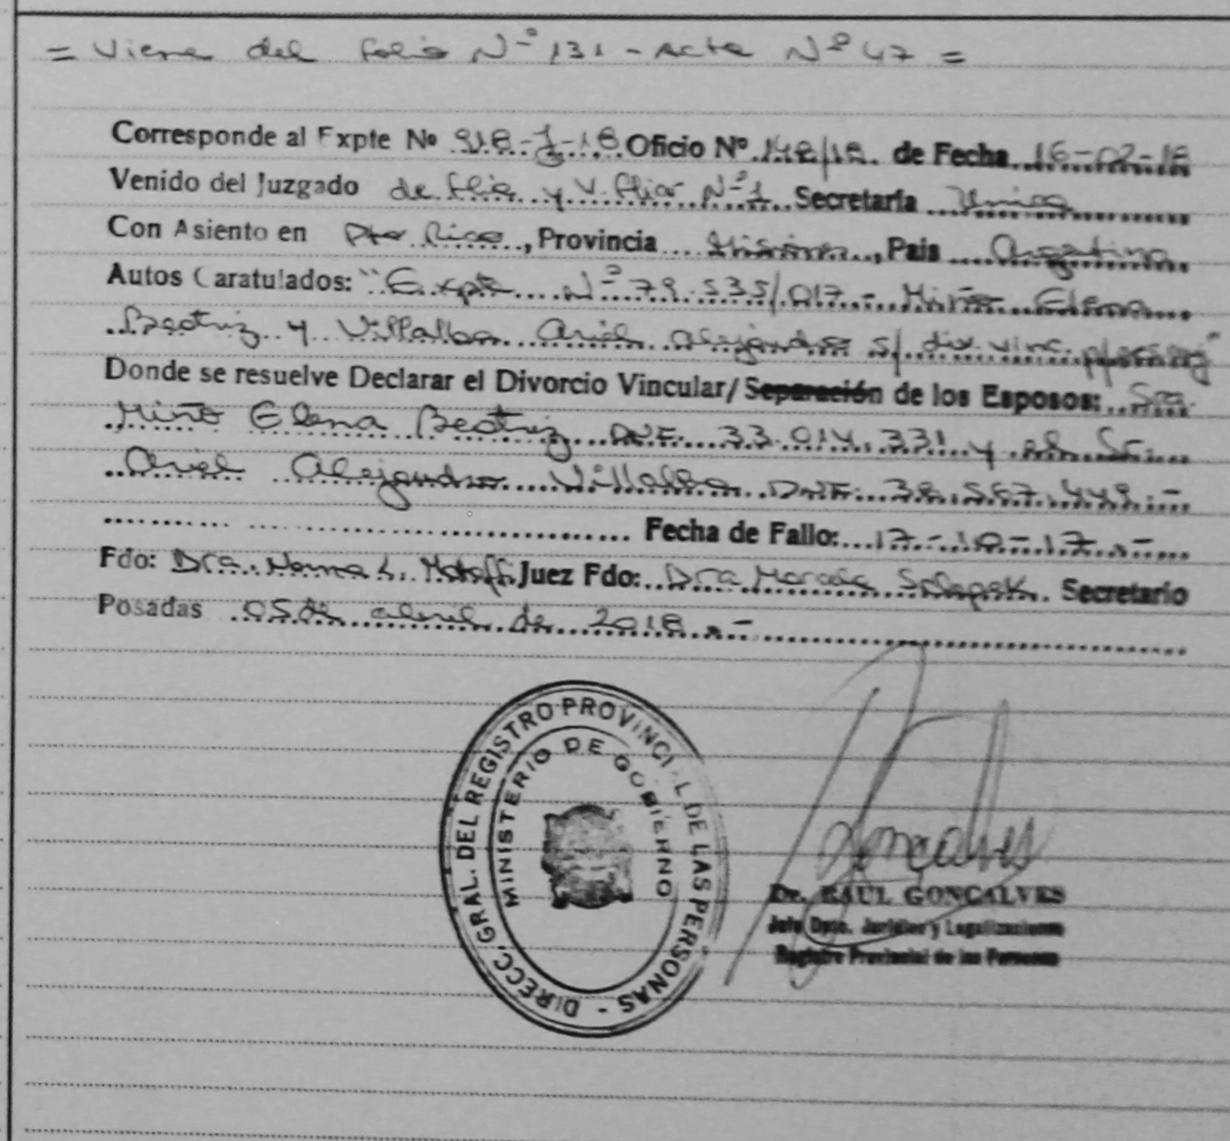 = Viene del folio Nº 131 - Acta Nº 47 =
Corresponde al Expte Nº 918-J-18 Oficio Nº 148/18. de Fecha 16-02-18
Venido del Juzgado de flia y V. fliar Nº 1 Secretaría Unica
Con Asiento en Pto Rico, Provincia Misiones, Pais Argentina
Autos Caratulados: "Expte Nº 79.535/017.- Miño Elena
Beatriz y Villalba Ariel Alejandro s/ div. vinc.
Donde se resuelve Declarar el Divorcio Vincular/Separación de los Esposos: Sra.
Miño Elena Beatriz DNI. 33.014.331 y el Sr.
Ariel Alejandro Villalba DNI. 38.567.449.-
Fecha de Fallo: 17-10-17.-
Fdo: Dra. Juez Fdo: Dra Secretario
Posadas 05 de abril de 2018.-
DIRECC. GRAL. DEL REGISTRO PROVINCIAL DE LAS PERSONAS -
MINISTERIO DE GOBIERNO
Goncalves
Dr. RAUL GONCALVES
Jefe Dpto. Jurídico y Legalizaciones
Registro Provincial de las Personas